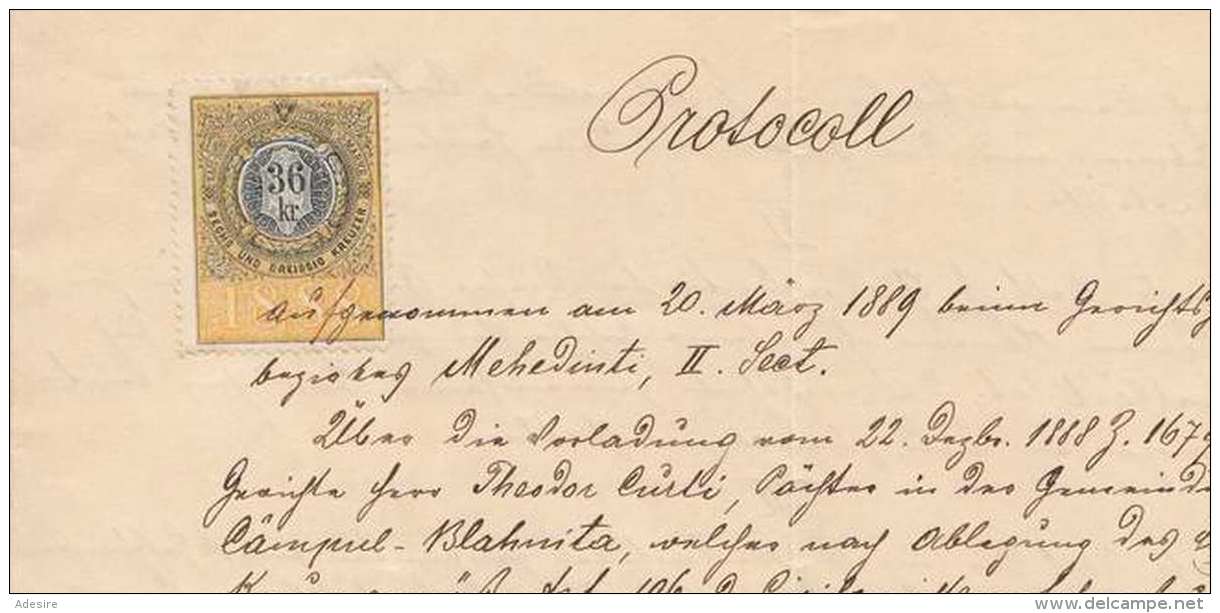 Protocoll
36
kr
SECHS UND DREISSIG KREUZER
188
aufgenommen am 20. März 1889 beim Gerichts
bezirkes Mehedinti, II. Sect.
Über die Vorladung vom 22. Dezbr. 1888 Z. 1679
Gerichte Herr Theodor Curti, Pächter in der Gemeinde
Câmpul-Blahnita, welcher nach Ablegung des
Art. 196 d. Civil
Adesire
delcampe.net